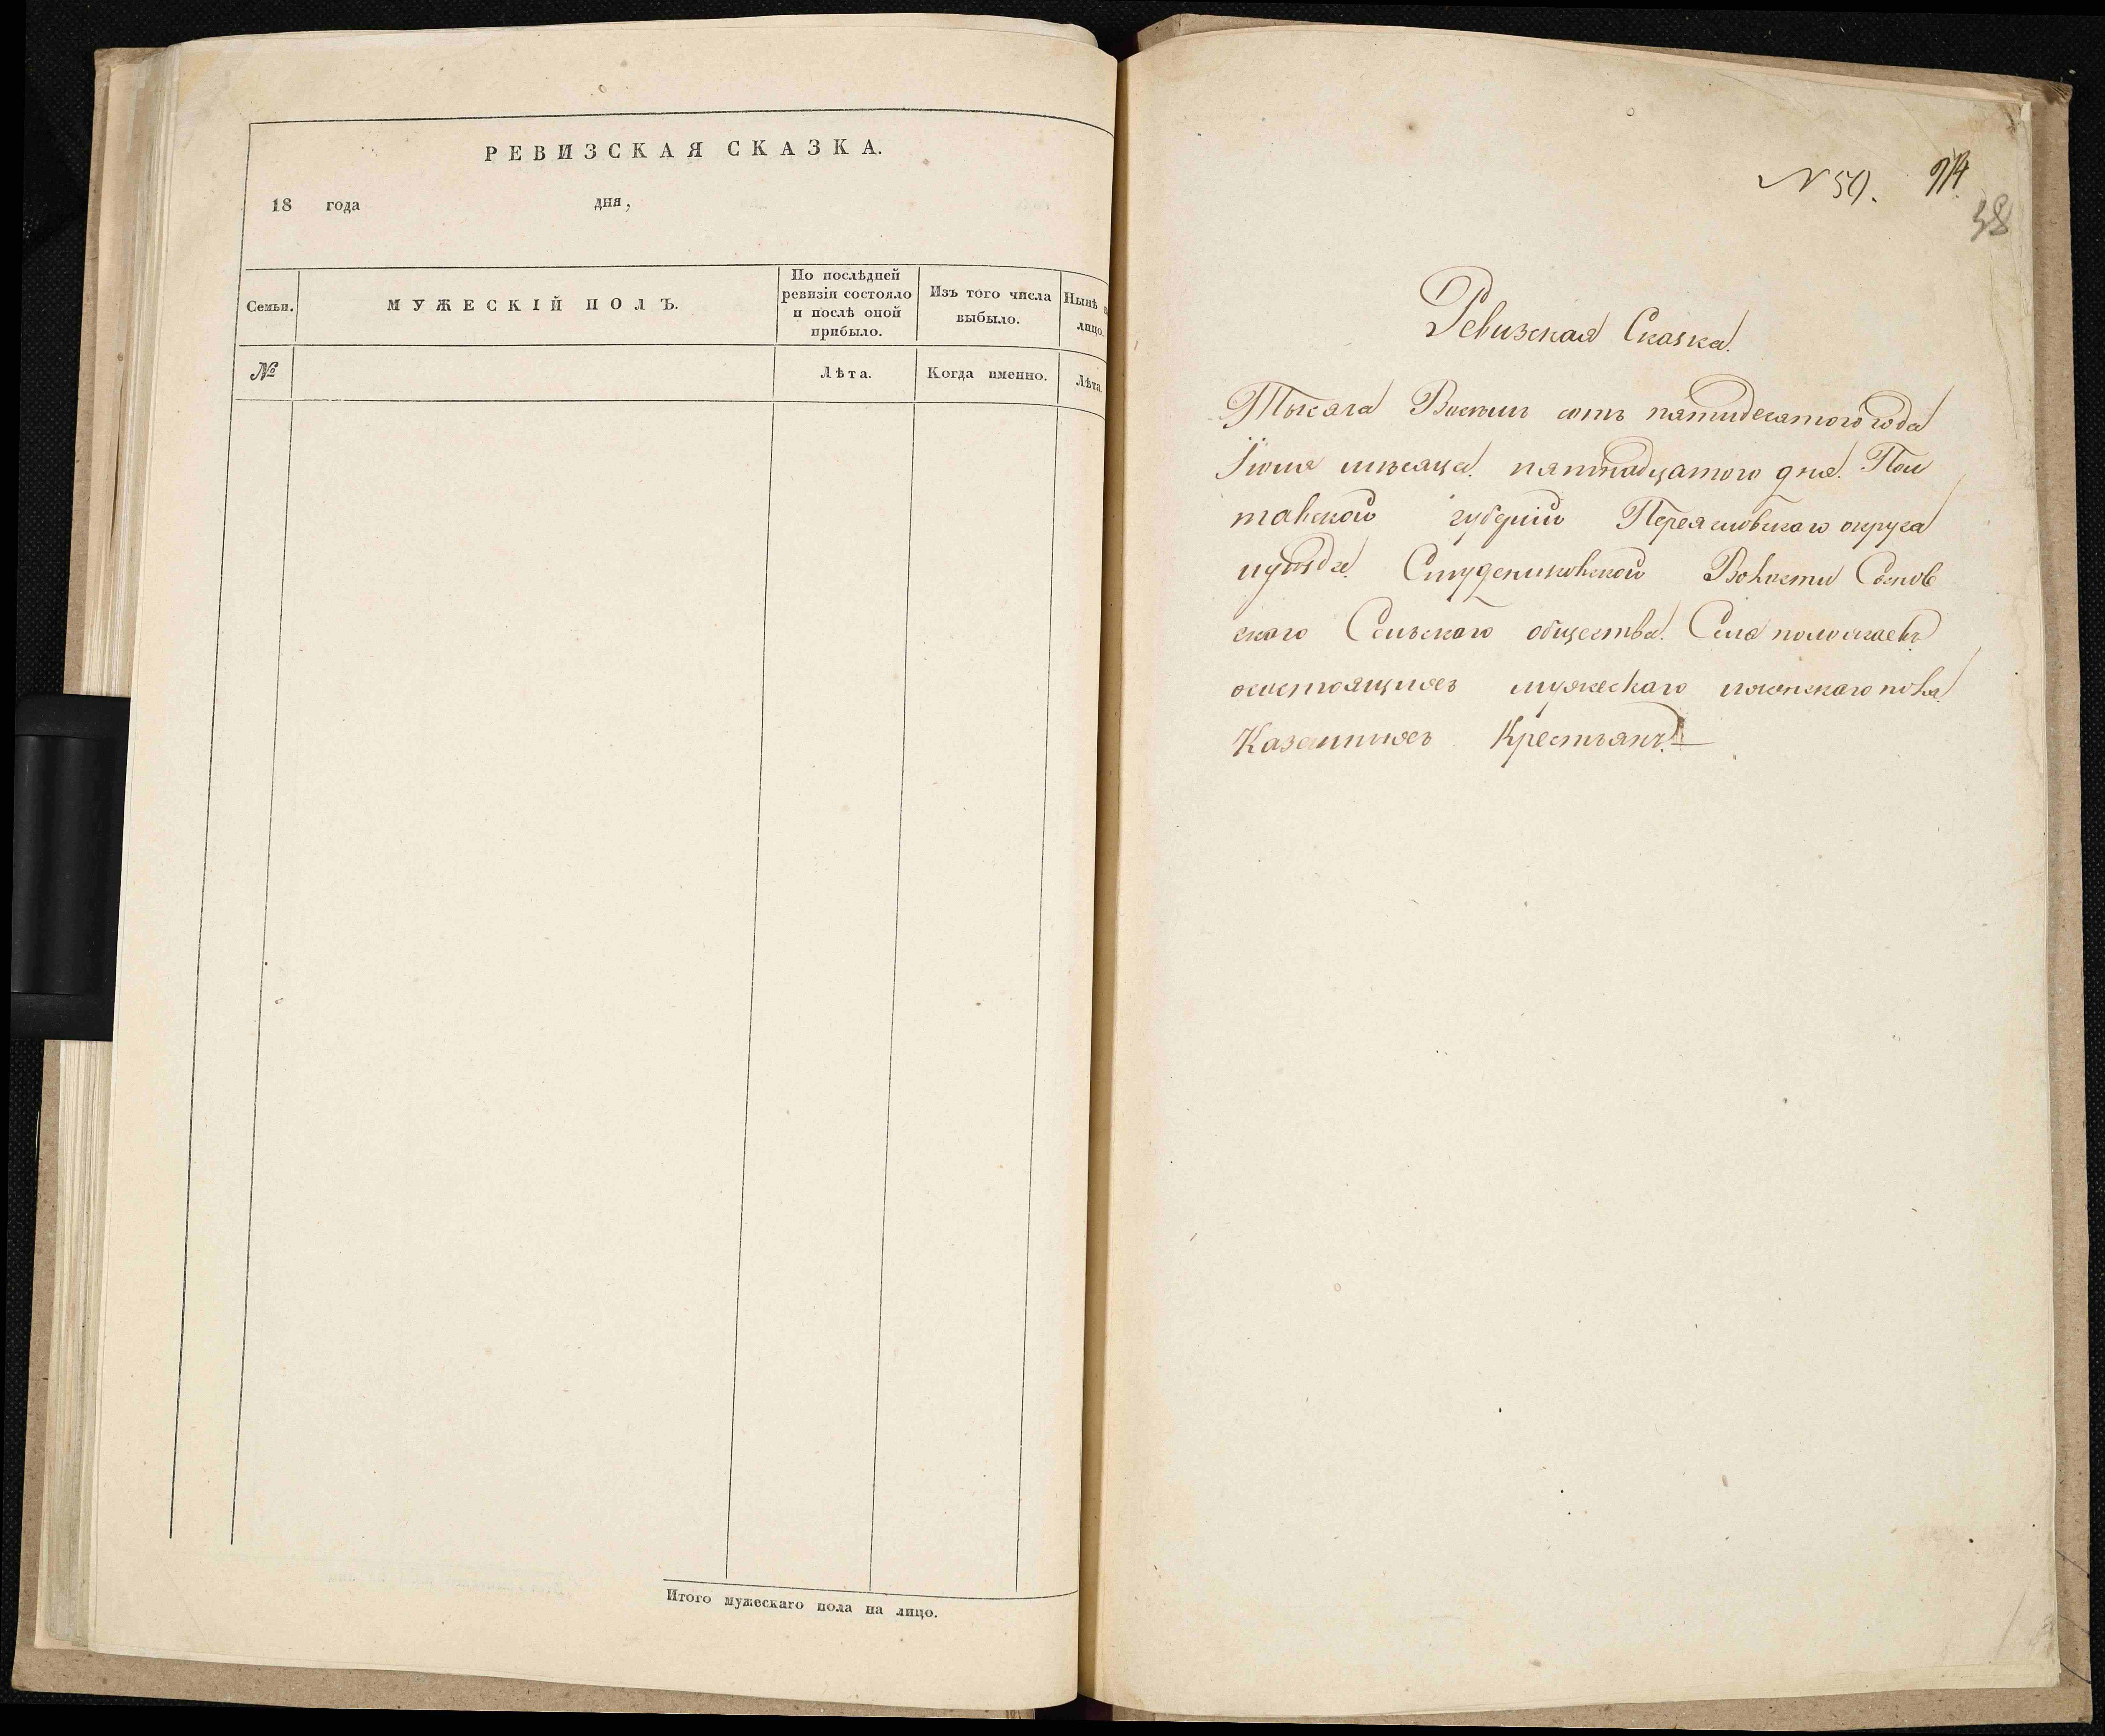 РЕВИЗСКАЯ СКАЗКА.
18 года дня,
Семьи.
МУЖЕСКІЙ ПОЛЪ.
По послѣдней
ревизіи состояло
и послѣ оной
прибыло.
Изъ того числа
выбыло.
Нынѣ
лицо.
№
Лѣта.
Когда именно.
Лѣта.
Итого мужескаго пола на лицо.
N 50.
38
Ревизская Сказка.
Тысяча Восемь сотъ пятидесятого года
Іюня мѣсяца пятнадцатого дня. Пол
тавской губерніи Переясловскаго округа
иуѣзда Студениковской Волости Соснов
скаго Сельскаго общества. Села
осостоящихъ мужескаго иженскаго пола
Казенныхъ Крестьянъ.